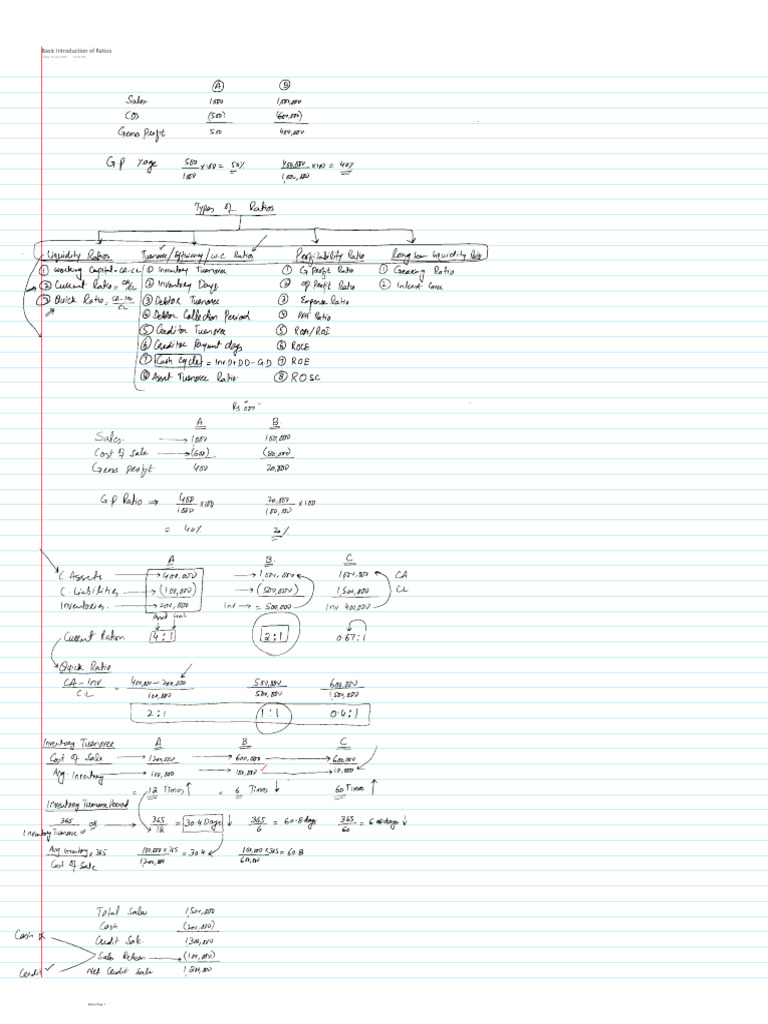 Basic Introduction of Ratios
A B
Sales 1000 1,000,000
COS (500) (600,000)
Gross Profit 500 400,000
G P %age 500/1000 x100 = 50% 400,000/1,000,000 x100 = 40%
Types of Ratios
Liquidity Ratios Turnover/Efficiency/W.C Ratios Profitability Ratio Long term Liquidity Ratio
① Working Capital = CA-CL ① Inventory Turnover ① G Profit Ratio ① Gearing Ratio
② Current Ratio = CA/CL ② Inventory Days ② OP Profit Ratio ② Interest Cover
③ Quick Ratio = CA-Inv/CL ③ Debtor Turnover ③ Expense Ratio
④ Debtor Collection Period ④ Ratio
⑤ Creditor Turnover ⑤ ROA/ROI
⑥ Creditor Payment days ⑥ ROCE
⑦ Cash Cycle = InvD+DD-CD ⑦ ROE
⑧ Asset Turnover Ratio ⑧ ROSC
Rs "000"
A B
Sales 1000 100,000
Cost of Sale (600) (80,000)
Gross profit 400 20,000
G P Ratio 400/1000 x100 20,000/100,000 x100
= 40% 20%
A B C
C Assets 400,000 1,000,000 1,000,000 CA
C. Liabilities (100,000) (500,000) 1,500,000 CL
Inventories 200,000 Inv = 500,000 Inv 400,000
Asset Liab
Current Ration 4:1 2:1 0.67:1
Quick Ratio
CA - Inv/CL = 400,000 - 200,000/100,000 500,000/500,000 600,000/1,500,000
2:1 1:1 0.4:1
Inventory Turnover A B C
Cost of Sale 1,200,000 600,000 600,000
Avg. Inventory 100,000 100,000 10,000
= 12 Times = 6 Times 60 Times
Inventory Turnover Period
365/Inventory Turnover OR 365/12 = 30.4 Days 365/6 = 60.8 days 365/60 = 6 days
Avg Inventory/Cost of Sale x 365 100,000 x 365/1,200,000 = 30.4 100,000 x 365/600,000 = 60.8
Total Sales 1,500,000
Cash (200,000)
Cash x Credit Sale 1,300,000
Sales Return (100,000)
Credit ✓ Net Credit Sale 1,200,000